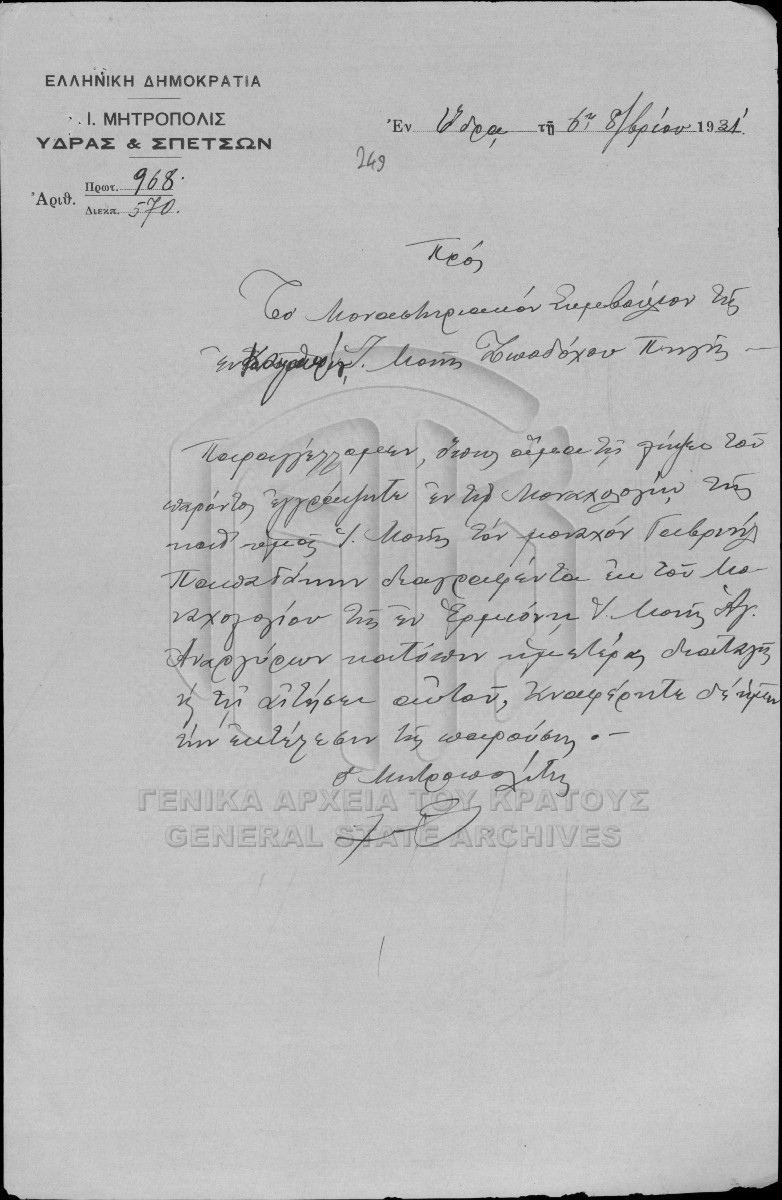 ΕΛΛΗΝΙΚΗ ΔΗΜΟΚΡΑΤΙΑ
Ι. ΜΗΤΡΟΠΟΛΙΣ
ΥΔΡΑΣ & ΣΠΕΤΣΩΝ
Ἀριθ. Πρωτ. 968.
Διεκπ. 570.
Ἐν Ὕδρᾳ τῇ 6ῃ 8/βρίου 1931
249
Πρός
Το Μοναστηριακόν Συμβούλιον τῆς
ἐν Ἱ. Μονῆς Ζωοδόχου Πηγῆς –
Παραγγέλλομεν, ὅπως ἅμα τῇ λήψει τοῦ
παρόντος ἐγγράψητε ἐν τῷ Μοναχολογίῳ τῆς
καθ' ὑμᾶς Ἱ. Μονῆς τόν μοναχόν Γαβριήλ
διαγραφέντα ἐκ τοῦ Μο-
ναχολογίου τῆς ἐν Ἑρμιόνῃ Ἱ. Μονῆς Ἁγ.
Ἀναργύρων κατόπιν ἡμετέρας διαταγῆς
τῇ αἰτήσει αὐτοῦ, ἀναφέρητε δέ ἡμῖν
τήν ἐκτέλεσιν τῆς παρούσης. –
ὁ Μητροπολίτης
ΓΕΝΙΚΑ ΑΡΧΕΙΑ ΤΟΥ ΚΡΑΤΟΥΣ
GENERAL STATE ARCHIVES